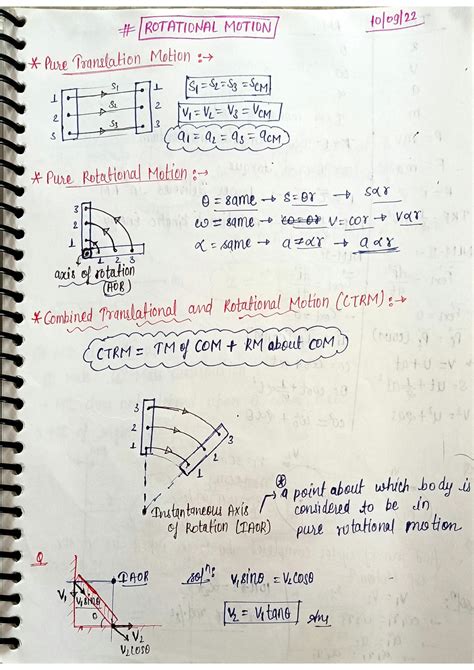 # ROTATIONAL MOTION
10/09/22
* Pure Translation Motion :→
1 S₁ 1
2 S₂ 2
3 S₃ 3
S₁ = S₂ = S₃ = S_CM
V₁ = V₂ = V₃ = V_CM
a₁ = a₂ = a₃ = a_CM
* Pure Rotational Motion :→
3
2
1
1 2 3
axis of rotation
(AOR)
θ = same → S = θr → S∝r
ω = same → V = ωr → V∝r
α = same → a = αr → a∝r
* Combined Translational and Rotational Motion (CTRM) :→
CTRM = TM of COM + RM about COM
3
2
1
3
2
1
Instantaneous Axis
of Rotation (IAOR)
→ * a point about which body is
considered to be in
pure rotational motion
Q
IAOR
V₁
V₁sinθ
θ
V₂
V₂cosθ
solⁿ: V₁sinθ = V₂cosθ
V₂ = V₁tanθ Ans